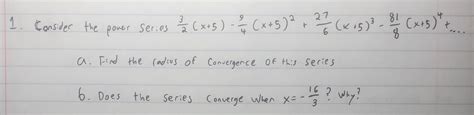 1. Consider the power series 3/2 (x+5) - 9/4 (x+5)² + 27/6 (x+5)³ - 81/8 (x+5)⁴ + ....
a. Find the radius of Convergence of this series
b. Does the series Converge when x = -16/3 ? Why?